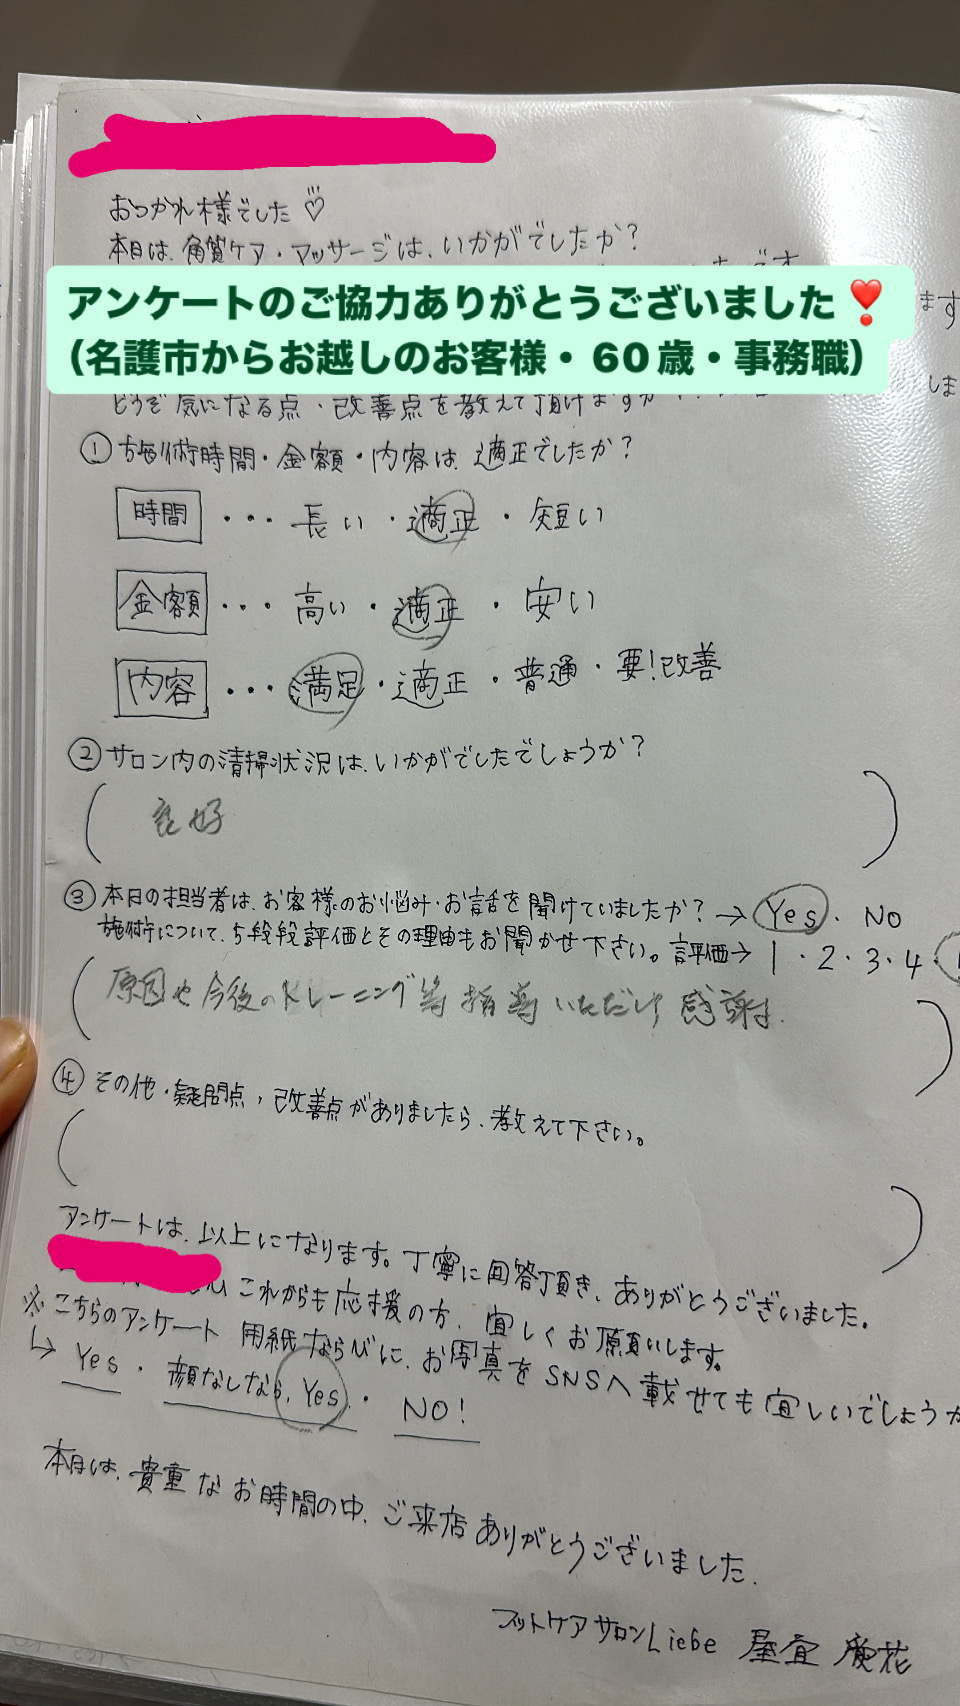 おつかれ様でした♡
本日は、角質ケア・マッサージは、いかがでしたか？
です
ます
アンケートのご協力ありがとうございました❣️
（名護市からお越しのお客様・60歳・事務職）
しま
どうぞ気になる点・改善点を教えて頂けますか
① 施術時間・金額・内容は、適正でしたか？
時間 ・・・ 長い・適正・短い
金額 ・・・ 高い・適正・安い
内容 ・・・ 満足・適正・普通・要!改善
② サロン内の清掃状況は、いかがでしたでしょうか？
( 良好 )
③ 本日の担当者は、お客様のお悩み・お話を聞けていましたか？→ Yes・NO
施術について、5段段評価とその理由もお聞かせ下さい。評価→ 1・2・3・4・
( 原因や今後のトレーニング等指導いただけ感謝です. )
④ その他・疑問点、改善点がありましたら、教えて下さい。
( )
アンケートは、以上になります。丁寧に回答頂き、ありがとうございました。
これからも応援の方、宜しくお願いします。
※こちらのアンケート用紙ならびに、お写真をSNSへ載せても宜しいでしょうか
↳ Yes・顔なしなら、Yes・NO!
本日は、貴重なお時間の中、ご来店ありがとうございました.
フットケアサロンLiebe 屋宜